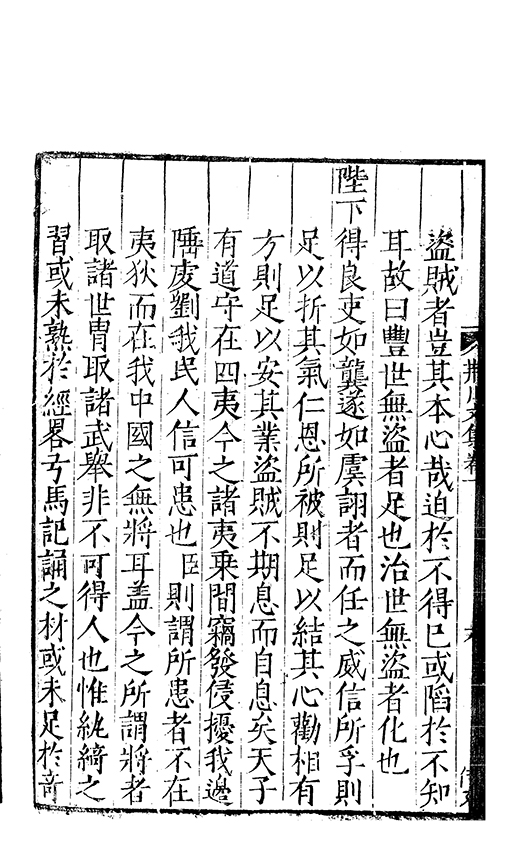 盜賊者豈其本心哉迫於不得已或陷於不知
耳故曰豐世無盜者足也治世無盜者化也
陛下得良吏如龔遂如虞詡者而任之威信所孚則
足以折其氣仁恩所被則足以結其心勸相有
方則足以安其業盜賊不期息而自息矣天子
有道守在四夷今之諸夷乗間竊發侵擾我邉
陲虔劉我民人信可患也臣則謂所患者不在
夷狄而在我中國之無將耳盖今之所謂將者
取諸世胄取諸武舉非不可得人也惟紈綺之
習或未熟於經畧弓馬記誦之材或未足於竒